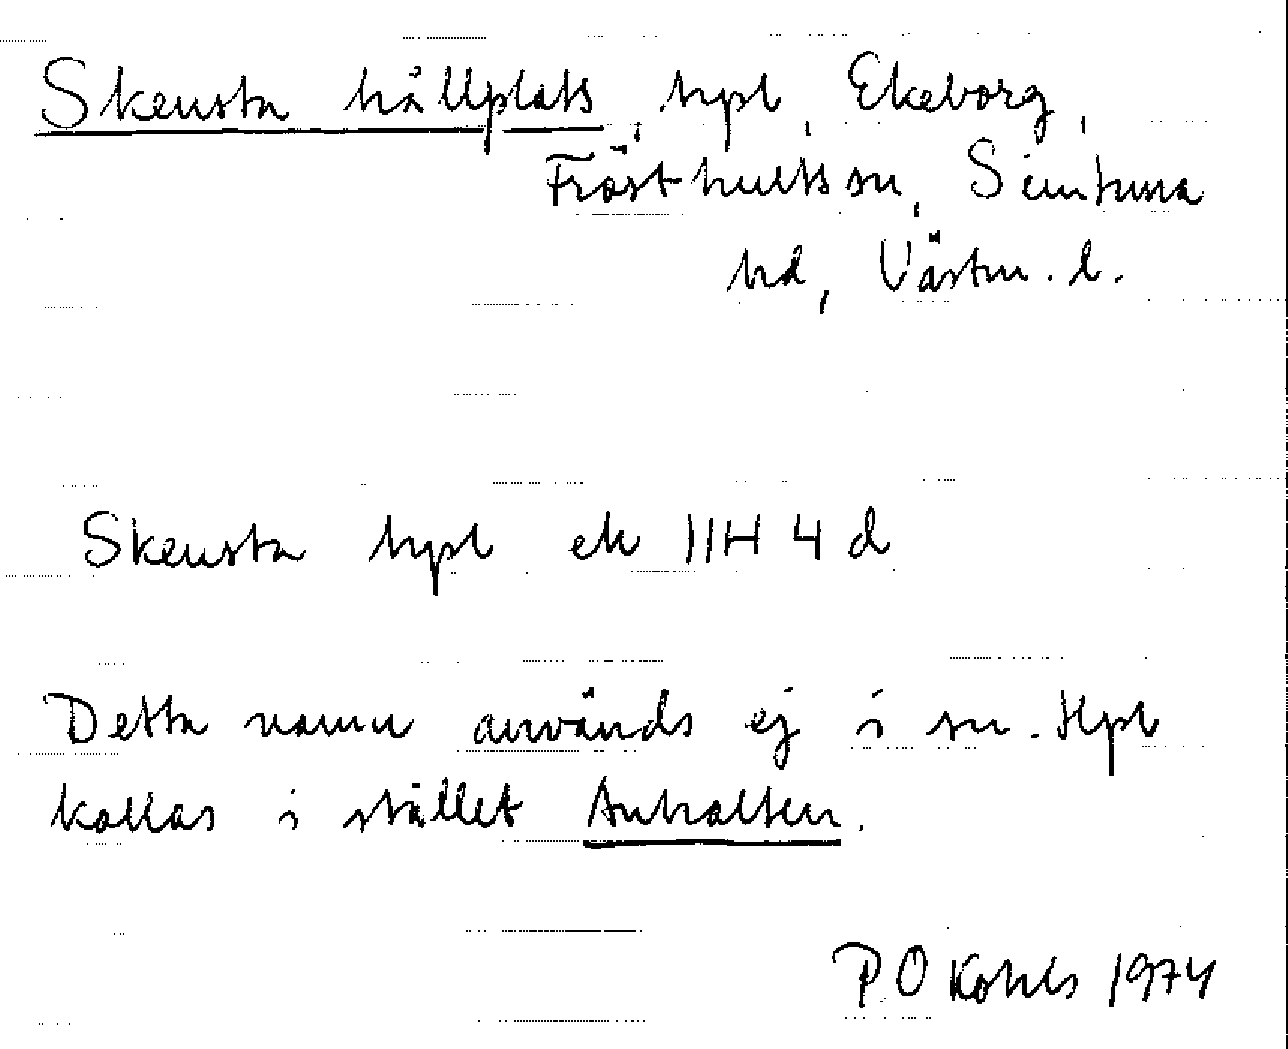 Skensta hållplats, hpl, Ekeborg,
Frösthults sn, Simtuna
hd, Västm. l.
Skensta hpl ek 11H 4 d
Detta namn används ej i sn. Hpl
kallas i stället Anhalten.
P.O Kohls 1974